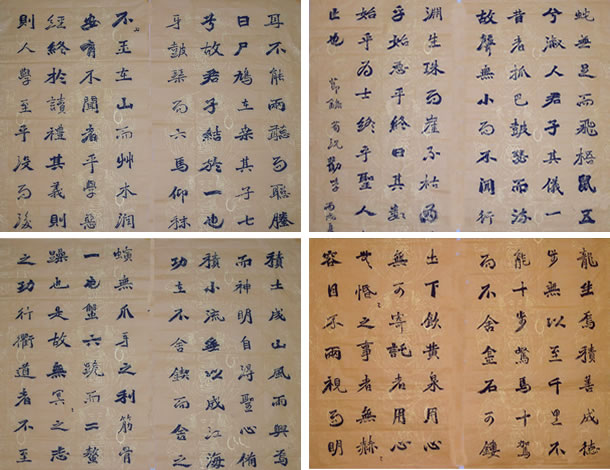 耳不能兩聽而聰螣
曰尸鳩在桑其子七
兮故君子結於一也
牙鼓琴而六馬仰秣
不玉在山而艸木潤
安有不聞者乎學惡
經終於讀禮其義則
則人學至乎沒而後
蛇無足而飛梧鼠五
兮淑人君子其儀一
昔者瓠巴鼓瑟而流
故聲無小而不聞行
淵生珠而崖不枯爲
乎始惡乎終曰其數
始乎爲士終乎聖人
止也
節錄荀況勸學
積土成山風雨興焉
而神明自得聖心備
積小流無以成江海
功在不舍鍥而舍之
螾無爪牙之利筋骨
一也蟹六跪而二螯
躁也是故無冥之志
之功行衢道者不至
龍生焉積善成德
步無以至千里不
能十步駑馬十駕
而不舍金石可鏤
土下飲黃泉用心
無可寄託者用心
無惛之事者無赫
容目不兩視而明